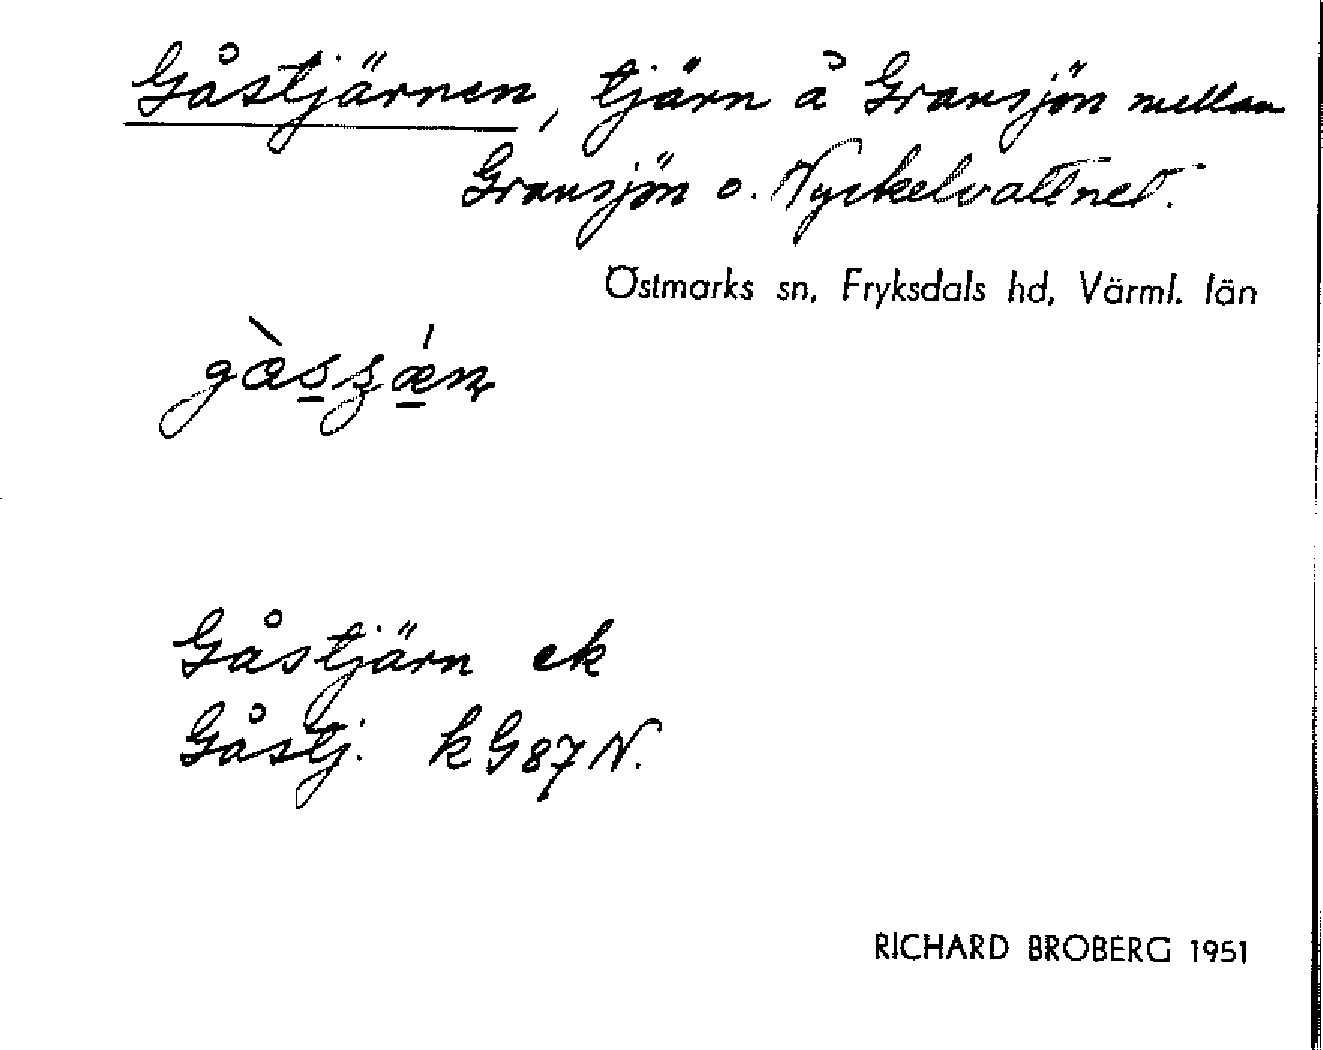 Gåstjärnen, tjärn å Gransjön mellan
Gransjön o. Nyckelvattnet.
Östmarks sn, Fryksdals hd, Värml. län
Gåstjärn ek
Gåstj. k G87 N.
RICHARD BROBERG 1951